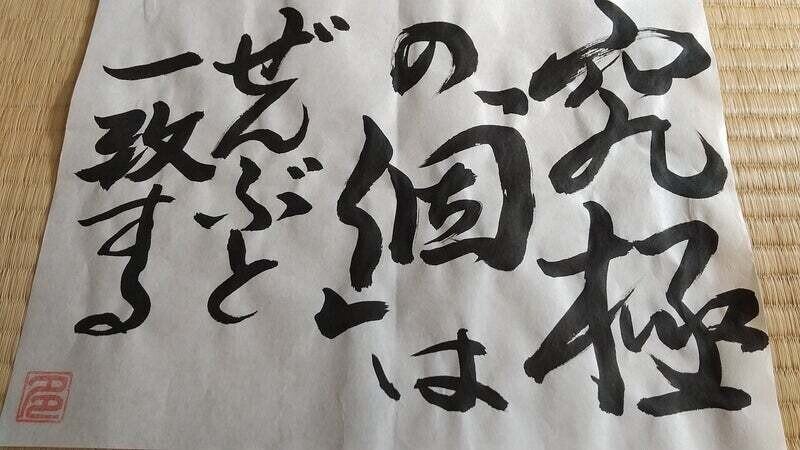 究極
の「個」は
ぜんぶと
一致する